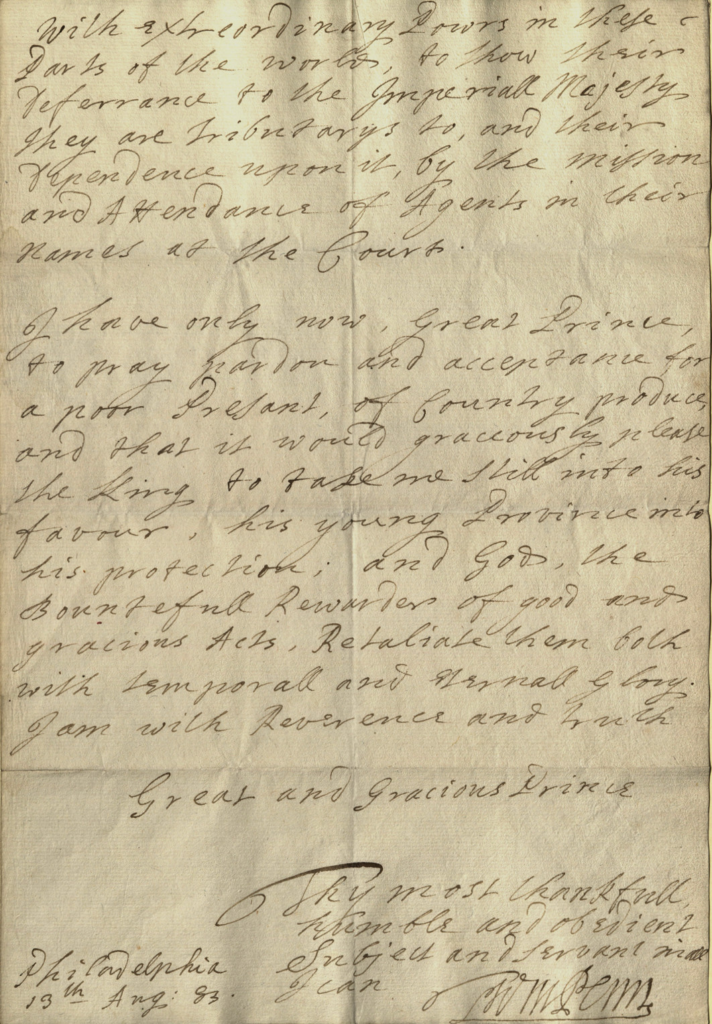 with extreordinary Powrs in these
Parts of the world, to show their
Deferrance to the Imperiall Majesty
they are tributarys to, and their
Dependence upon it, by the mission
and Attendance of Agents in their
names at the Court.
I have only now, Great Prince,
to pray pardon and acceptance for
a poor Presant, of Country produce,
and that it would graceously please
the King to take me still into his
favour, his young Province into
his protection; and God, the
Bountefull Rewarder of good and
gracious Acts, Retaliate them both
with temporall and Eternall Glory.
I am with Reverence and truth
Great and Gracious Prince
Thy most thankfull,
humble and obedient
Subject and servant in all
I can
Philadelphia
13th Aug: 83.
Wm Penn